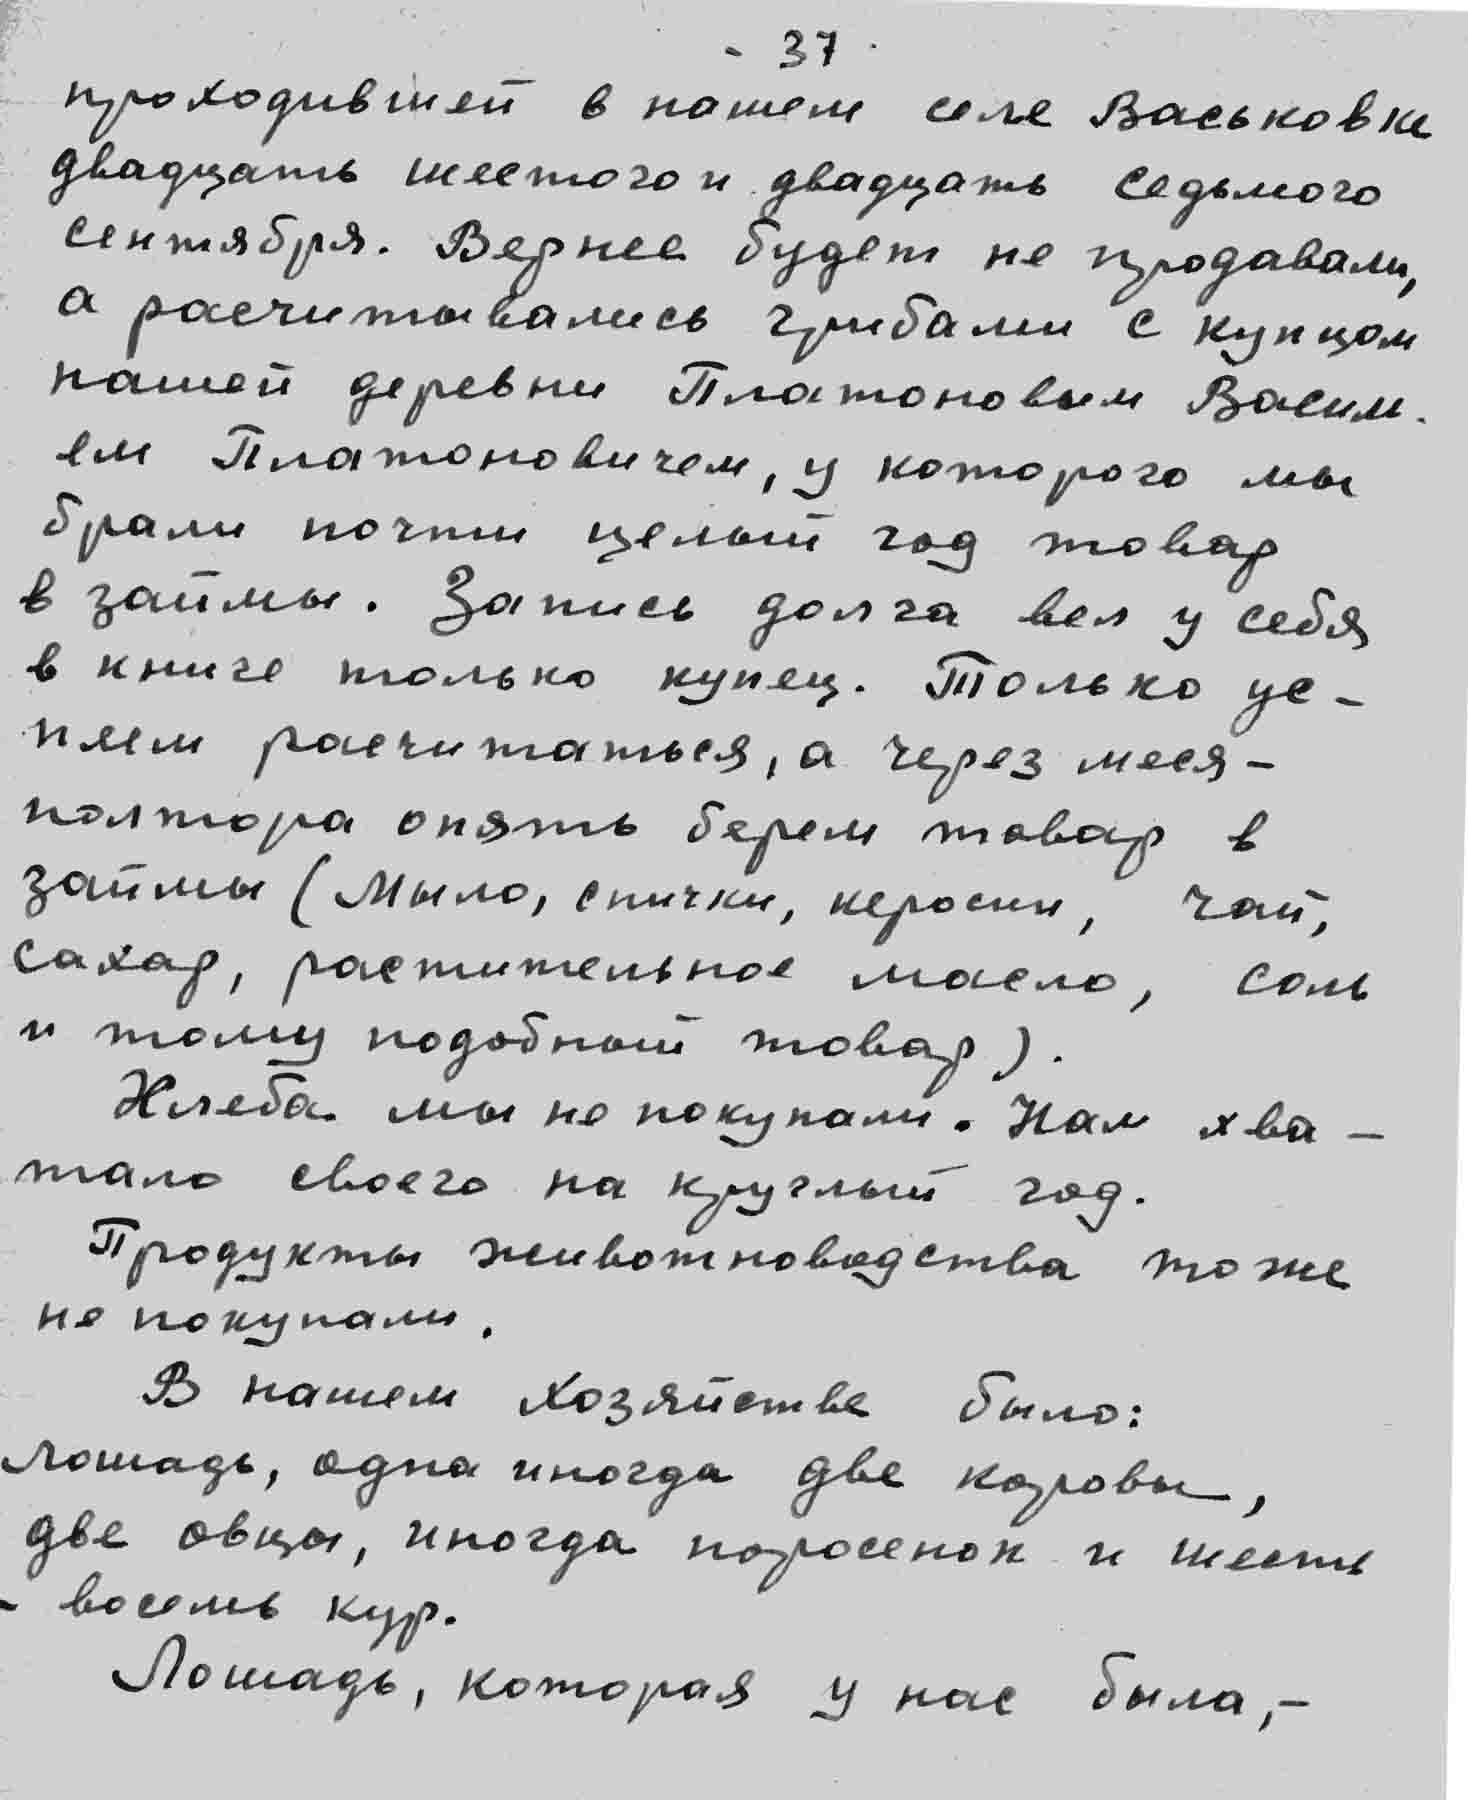 - 37 -
проходившей в нашем селе Васьковке
двадцать шестого и двадцать седьмого
сентября. Вернее будет не продавали,
а расчитывались грибами с купцом
нашей деревни Платоновым Васил-
ем Платоновичем, у которого мы
брали почти целый год товар
в займы. Запись долга вел у себя
в книге только купец. Только ус-
пеем расчитаться, а через меся-
полтора опять берем товар в
займы (Мыло, спички, керосин, чай,
сахар, растительное масло, соль
и тому подобный товар).
Хлеба мы не покупали. Нам хва-
тало своего на круглый год.
Продукты животноводства тоже
не покупали.
В нашем хозяйстве было:
лошадь, одна иногда две коровы,
две овцы, иногда поросенок и шесть
- восемь кур.
Лошадь, которая у нас была,-